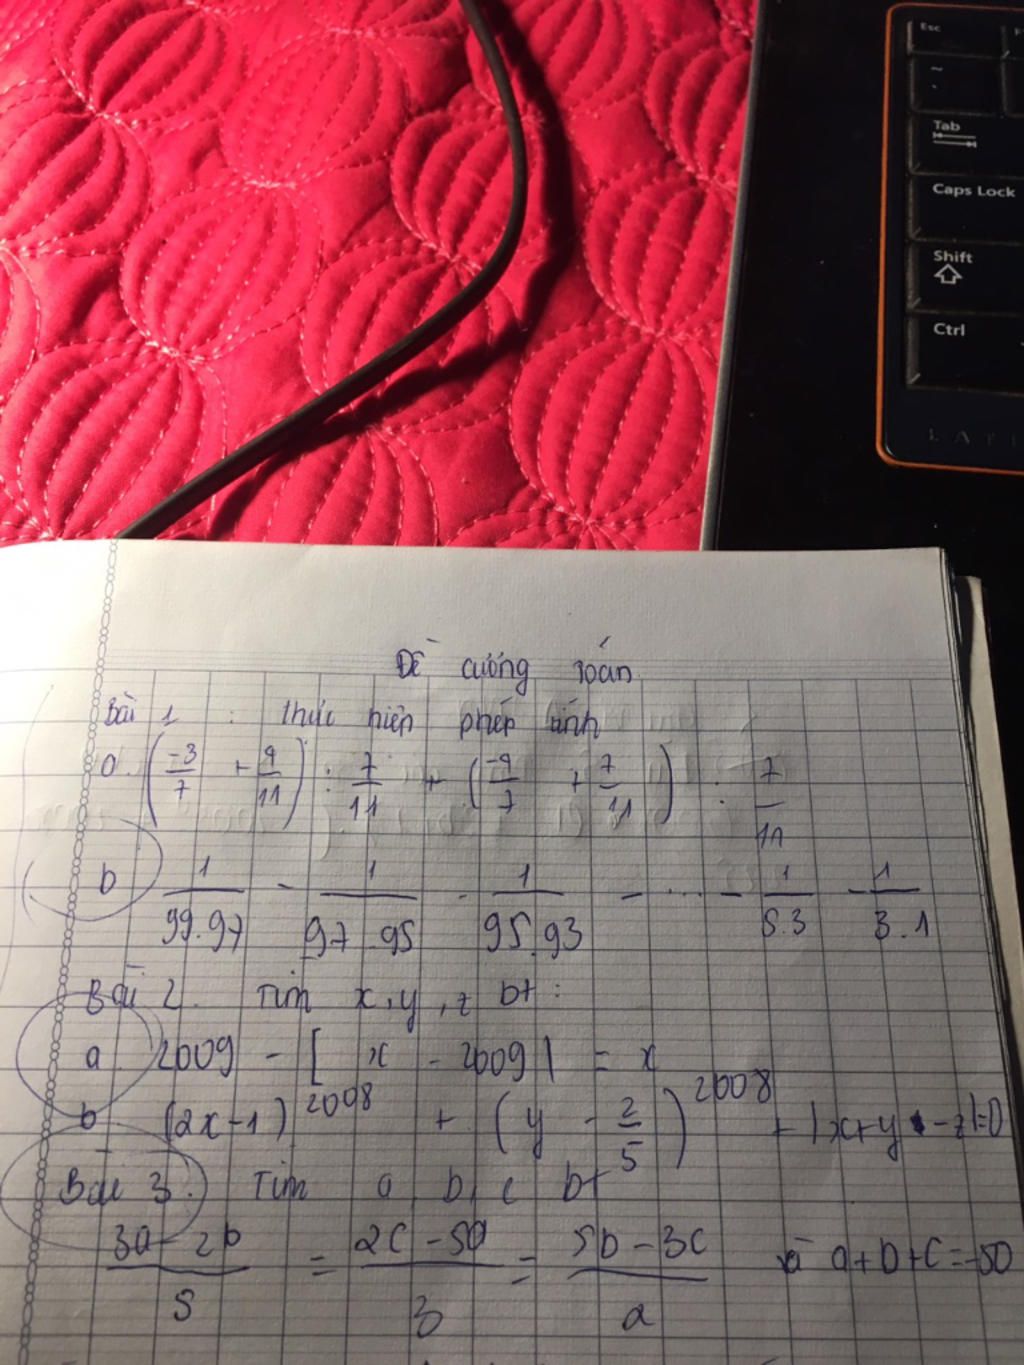 Esc
~
Tab
Caps Lock
Shift
Ctrl
LATI
Đề cương Toán
Bài 1 : thức hiện phép tính
a. (-3/7 + 9/11) : 7/11 + (-9/7 + 7/11) : 7/11
b 1/99.97 - 1/97.95 - 1/95.93 - ... - 1/5.3 - 1/3.1
Bài 2. Tìm x, y, z bt :
a 2009 - [x - 2009| = x
b (2x-1)^2008 + (y - 2/5)^2008 + |x+y - z|=0
Bài 3. Tìm a, b, c bt
3a - 2b/5 = 2c - 5a/3 = 5b - 3c/2 và a+b+c=-50